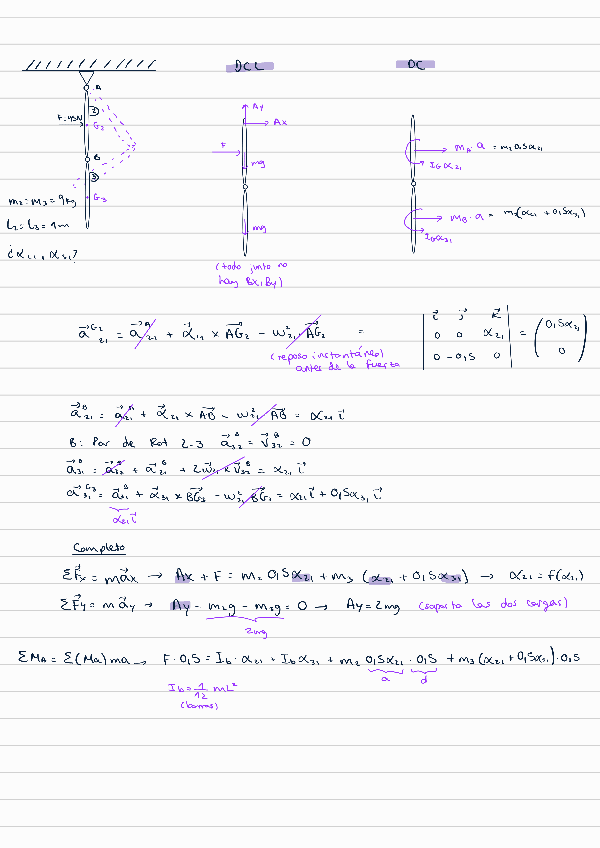 DCL
DC
A
2
F=45N
G2
B
3
G3
m2=m3=9kg
L2=L3=1m
¿α21, α31?
Ay
Ax
F
mg
mg
(todo junto no
hay Bx, By)
mA·a = m2 0,5α21
IGα21
mB·a = m3(α21 + 0,5α31)
IGα31
a⃗21^G2 = a⃗21^A + α⃗21 × AG2 − ω21² · AG2 =
(reposo instantáneo)
antes de la fuerza
i⃗ j⃗ k⃗
0 0 α21
0 -0,5 0
= (0,5α21
0)
a⃗21^B = a⃗21^A + α⃗21 × AB − ω21² AB = α21 i⃗
B: Par de Rot 2-3 a⃗32^B = v⃗32^B = 0
a⃗31^B = a⃗32^B + a⃗21^B + 2ω⃗21 × v⃗32^B = α21 i⃗
a⃗31^G3 = a⃗31^B + α⃗31 × BG3 − ω31² BG3 = α21 i⃗ + 0,5α31 i⃗
α21 i⃗
Completo
ΣF⃗x = ma⃗x → Ax + F = m2 0,5α21 + m3 (α21 + 0,5α31) → α21 = f(α31)
ΣF⃗y = ma⃗y → Ay − m2g − m3g = 0 → Ay = 2mg (soporta las dos cargas)
2mg
ΣMA = Σ(MA)ma → F·0,5 = Ib·α21 + Ib α31 + m2 0,5α21 · 0,5 + m3 (α21 + 0,5α31) · 0,5
a d
Ib = 1/12 mL²
(barras)